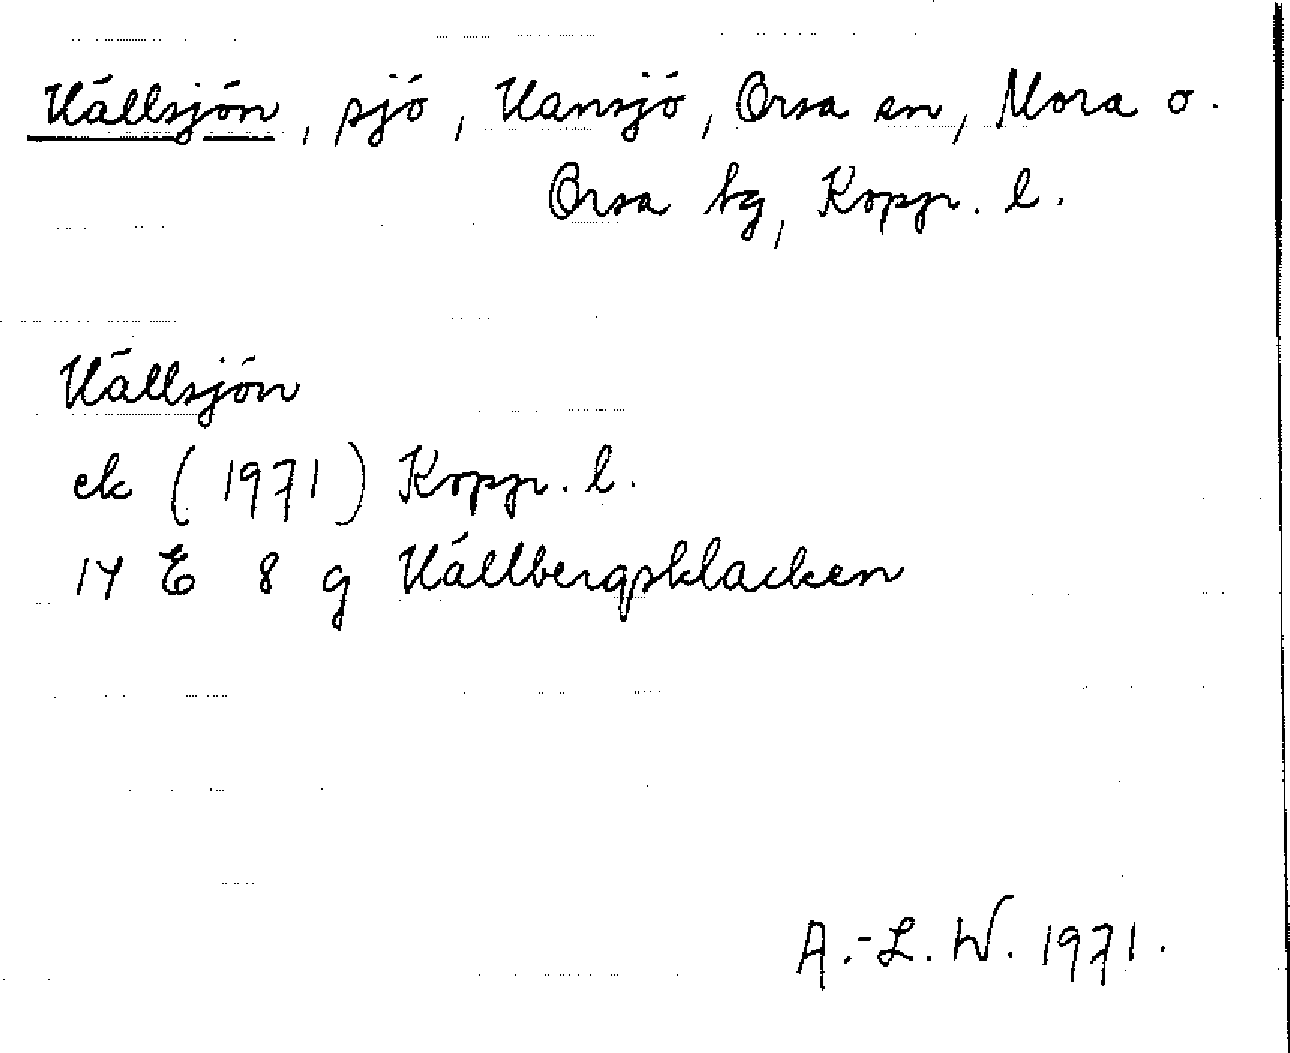 Hällsjön, sjö, Hansjö, Orsa sn, Mora o.
Orsa tg, Kopp. l.
Hällsjön
ek (1971) Kopp. l.
14 E 8 g Hällbergsklacken
A.-L. W. 1971.